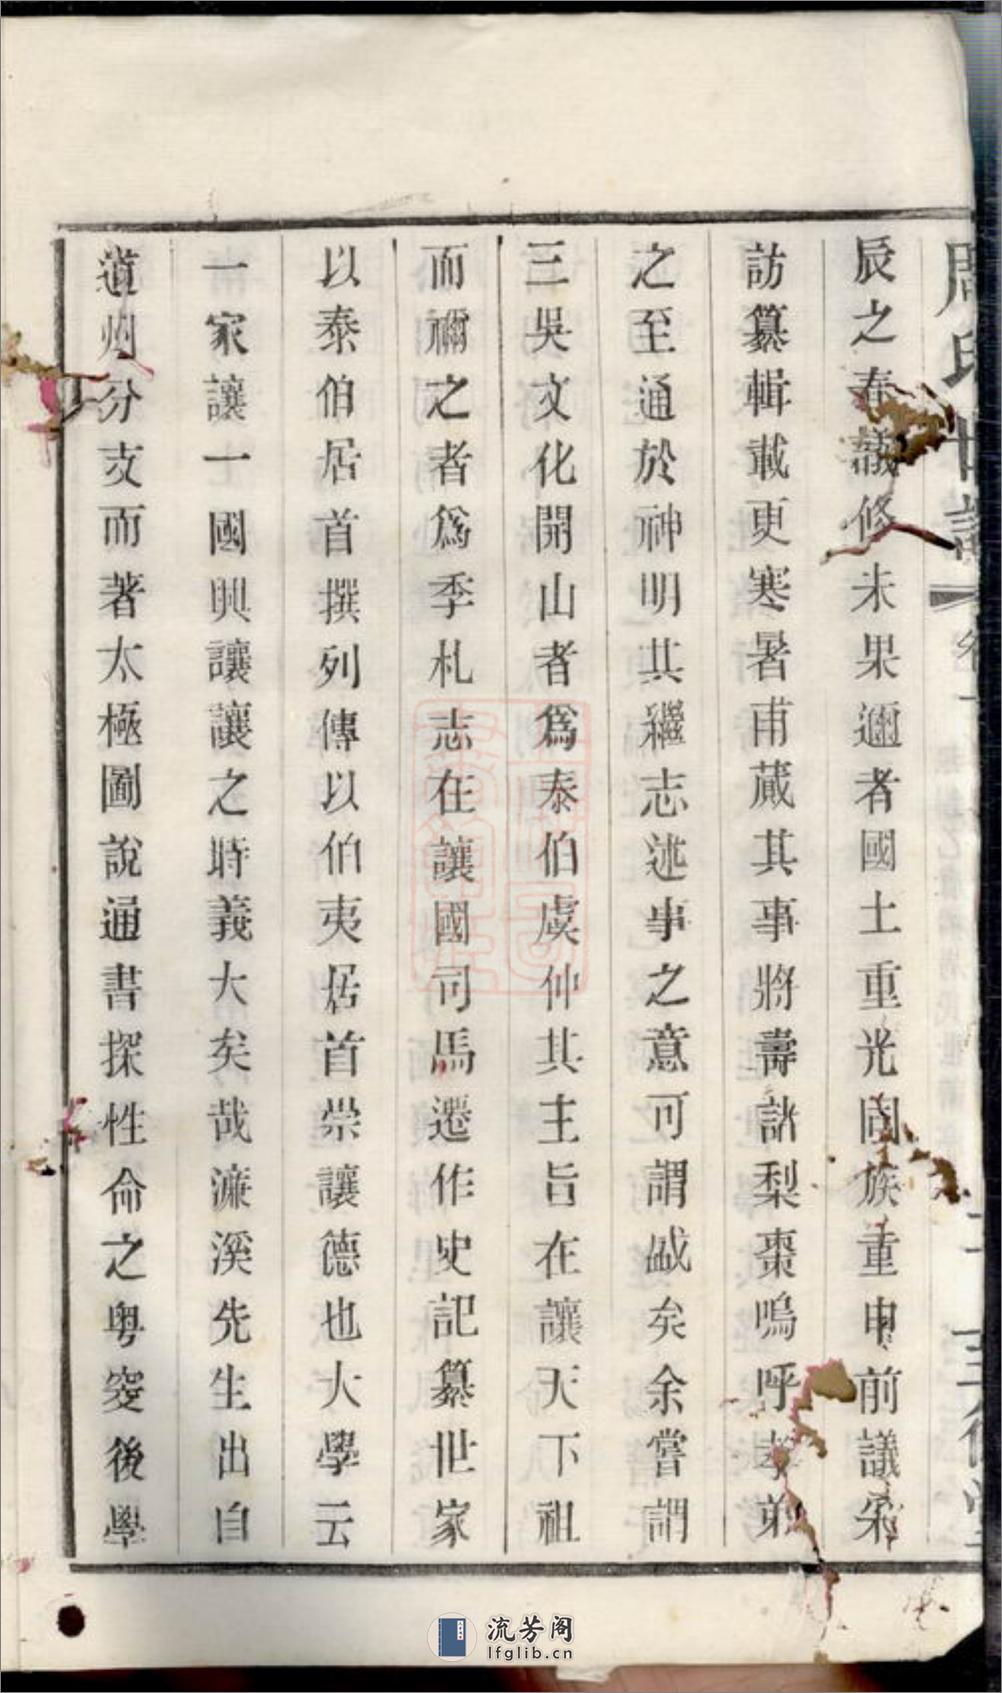 周氏世譜
辰之春議修未果邇者國土重光固族重申前議采
訪纂輯載更寒暑甫蕆其事將壽諸梨棗嗚呼孝弟
之至通於神明其繼志述事之意可謂誠矣余嘗謂
三吳文化開山者爲泰伯虞仲其主旨在讓天下祖
而禰之者爲季札志在讓國司馬遷作史記纂世家
以泰伯居首撰列傳以伯夷居首崇讓德也大學云
一家讓一國興讓讓之時義大矣哉濂溪先生出自
道州分支而著太極圖說通書探性命之粤窔後學
流芳阁
lfglib.cn